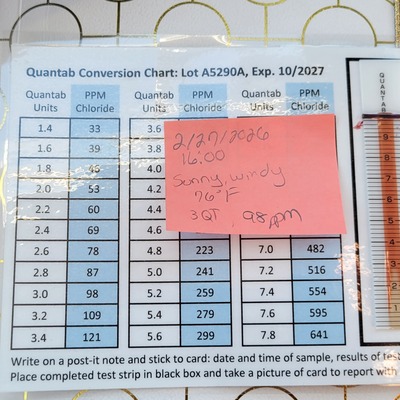 Quantab Conversion Chart: Lot A5290A, Exp. 10/2027
Quantab Units PPM Chloride Quantab Units PPM Chloride Quantab Units PPM Chloride
1.4 33 3.6
1.6 39 3.8
1.8 46 4.0
2.0 53 4.2
2.2 60 4.4
2.4 69 4.6
2.6 78 4.8 223 7.0 482
2.8 87 5.0 241 7.2 516
3.0 98 5.2 259 7.4 554
3.2 109 5.4 279 7.6 595
3.4 121 5.6 299 7.8 641
2/27/2026
16:00
Sunny, windy
76°F
3QT, 98 ppm
QUANTAB
9
8
7
6
5
4
3
2
1
Write on a post-it note and stick to card: date and time of sample, results of test
Place completed test strip in black box and take a picture of card to report with